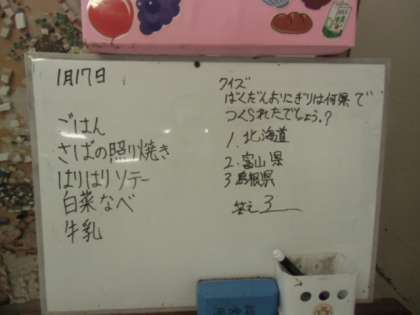 1月17日
ごはん
さばの照り焼き
はりはりソテー
白菜なべ
牛乳
クイズ
ばくだんおにぎりは何県で
つくられたでしょう。?
1.北海道
2.富山県
3島根県
答え3